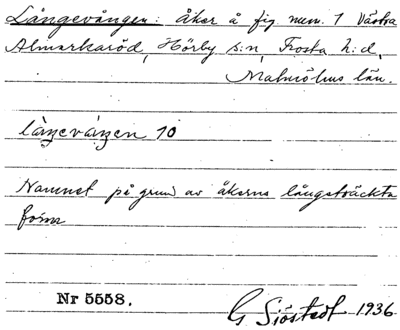 Långevången: Åker å fig num. 1 Västra
Almarkaröd, Hörby s:n, Frosta h:d,
Malmöhus län.
långevången 10
Namnet på grund av åkerns långsträckta
form
Nr 5558.
G Sjöstedt 1936